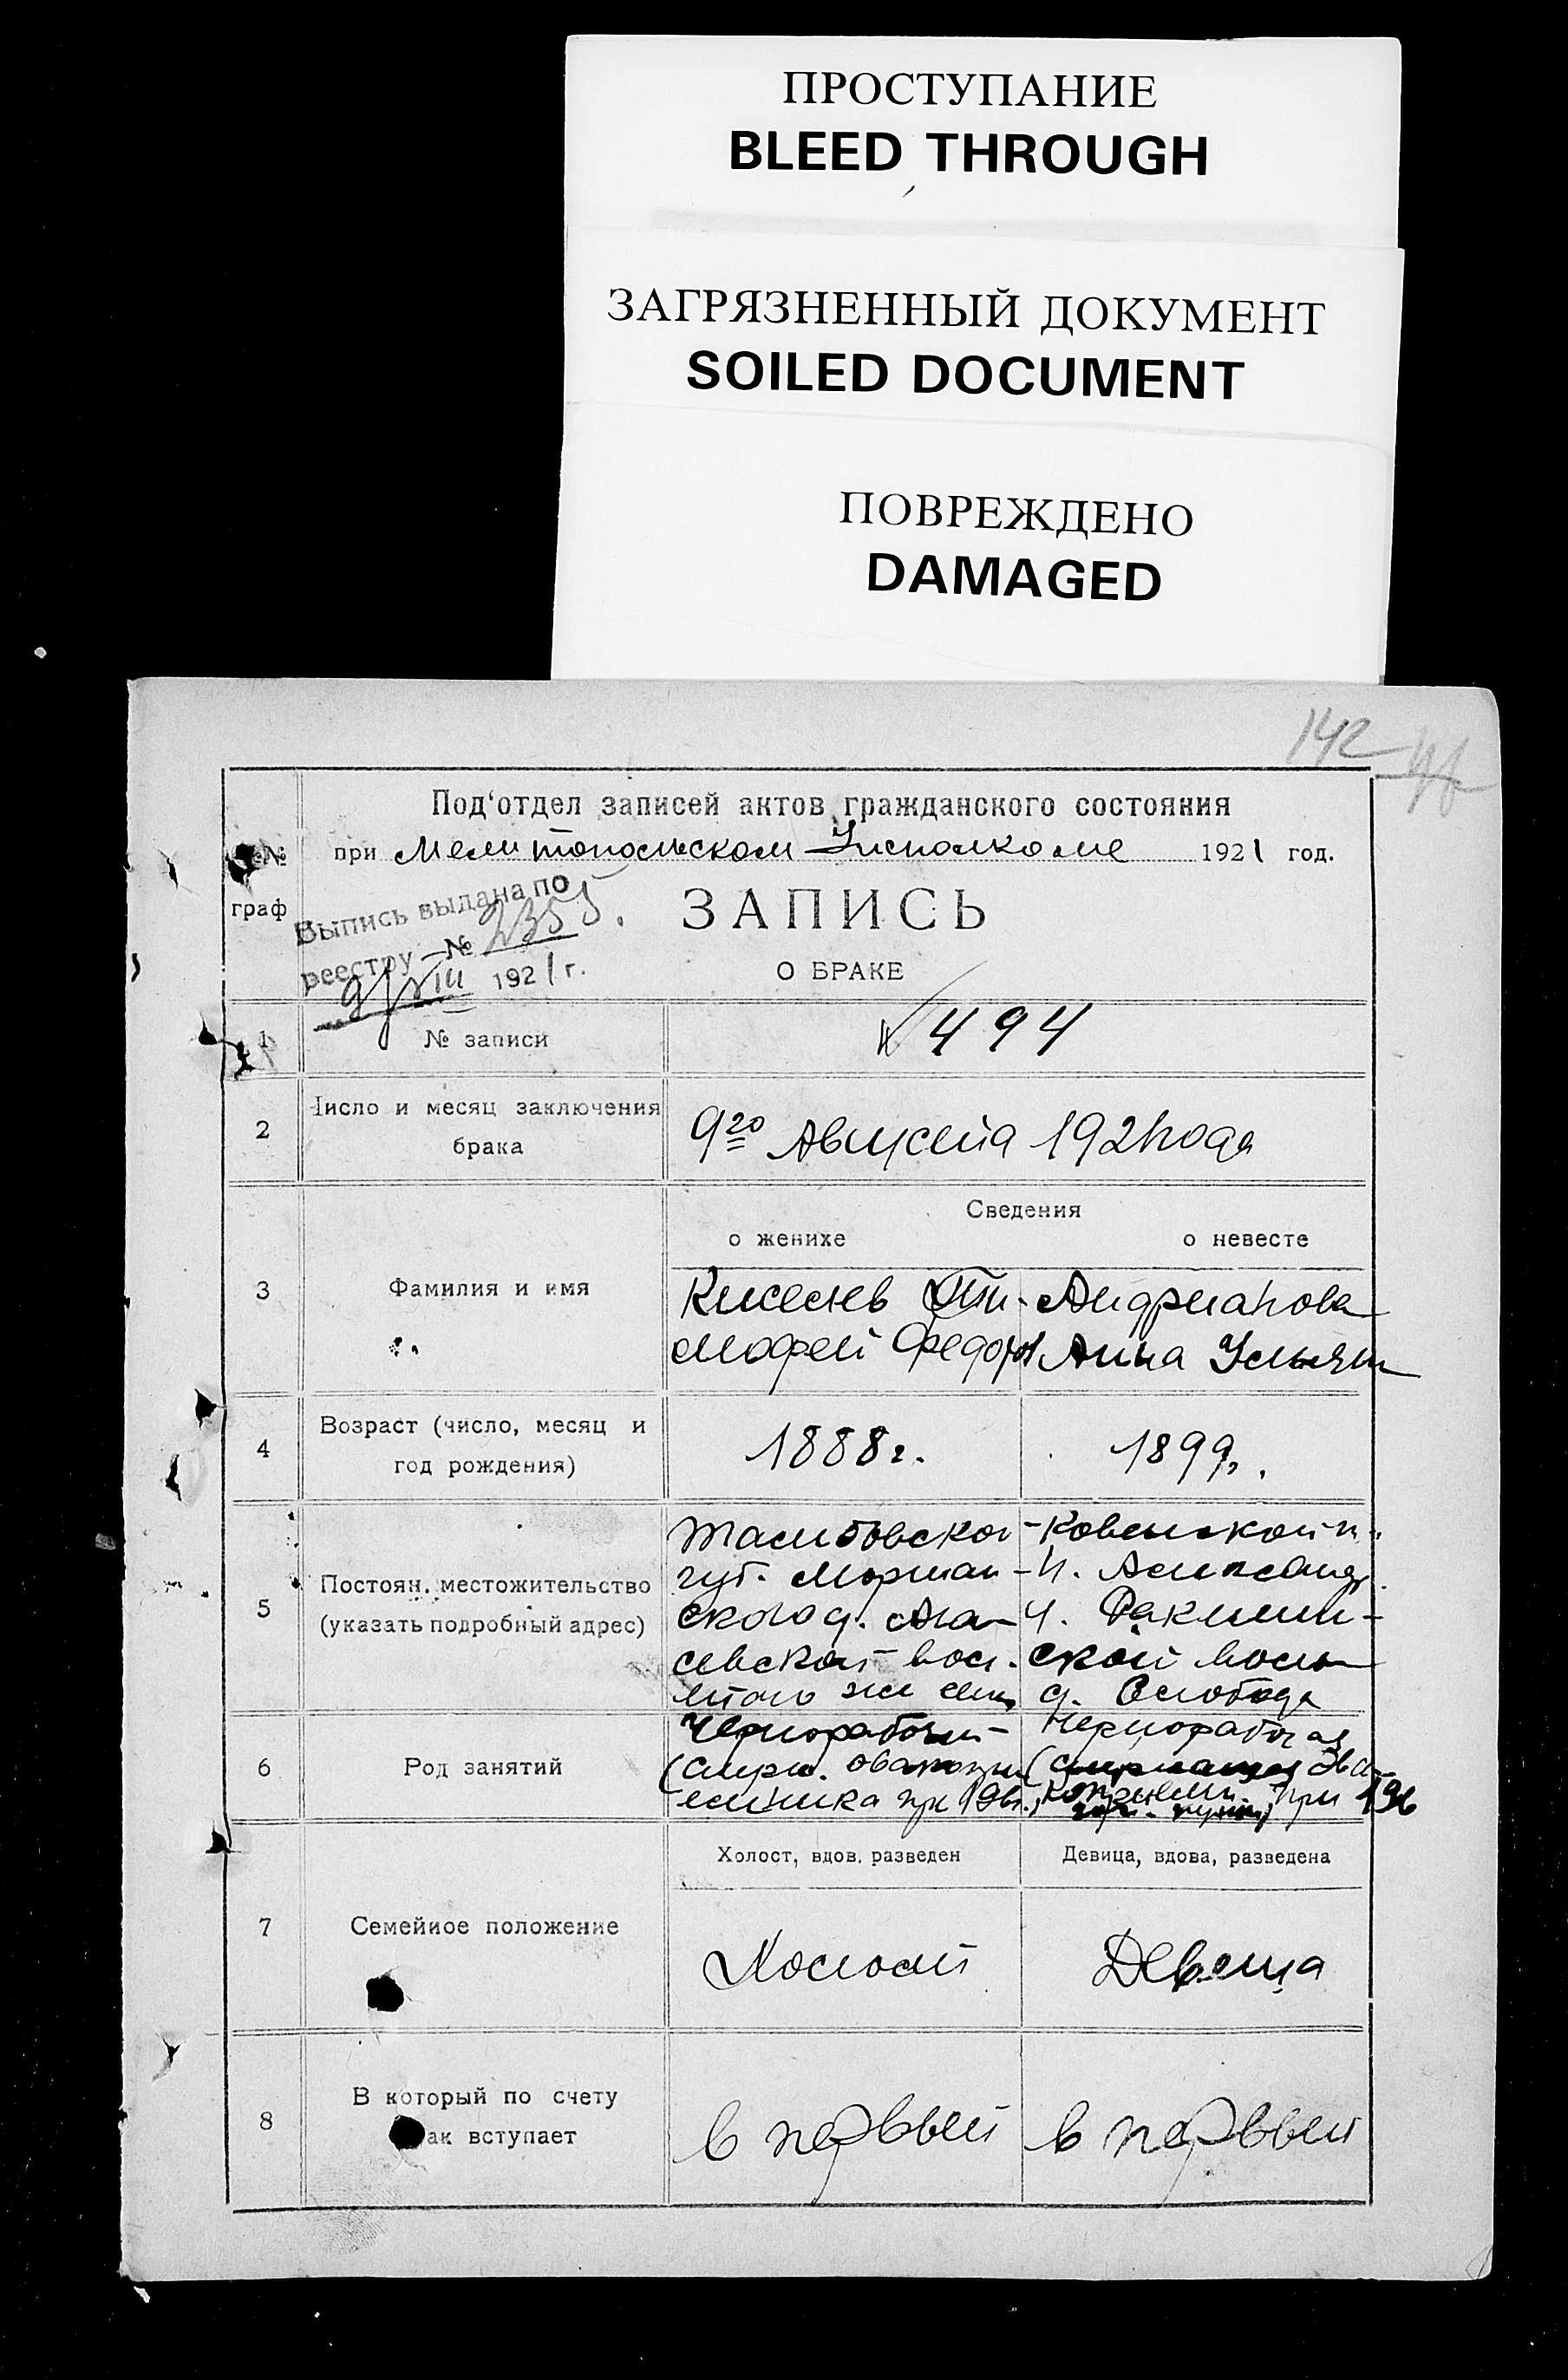 ПРОСТУПАНИЕ
BLEED THROUGH
ЗАГРЯЗНЕННЫЙ ДОКУМЕНТ
SOILED DOCUMENT
ПОВРЕЖДЕНО
DAMAGED
142
Под‘отдел записей актов гражданского состояния
№
при Мелитопольском Исполкоме 1921 год.
граф
Выпись выдана по
реестру № 2355.
9/VIII 1921 г.
ЗАПИСЬ
О БРАКЕ
1 № записи № 494
2 Число и месяц заключения
брака
9го Августа 1921 года
Сведения
о женихе о невесте
3 Фамилия и имя
Киселев Ти- Андрианова
мофей Федоров Анна Ульян
4 Возраст (число, месяц и
год рождения)
1888 г. 1899 г.
5 Постоян. местожительство
(указать подробный адрес)
Тамбовской Ковенской
губ. Моршан- Н. Александр.
ского у. Ала- у. Ракиш-
евской вол. ской волос
того же села д. Слобода
6 Род занятий
Чернорабочий Чернорабочая
(служ. при при
7 Семейное положение
Холост, вдов, разведен Девица, вдова, разведена
Холост Девица
8 В который по счету
ак вступает
в первый в первый